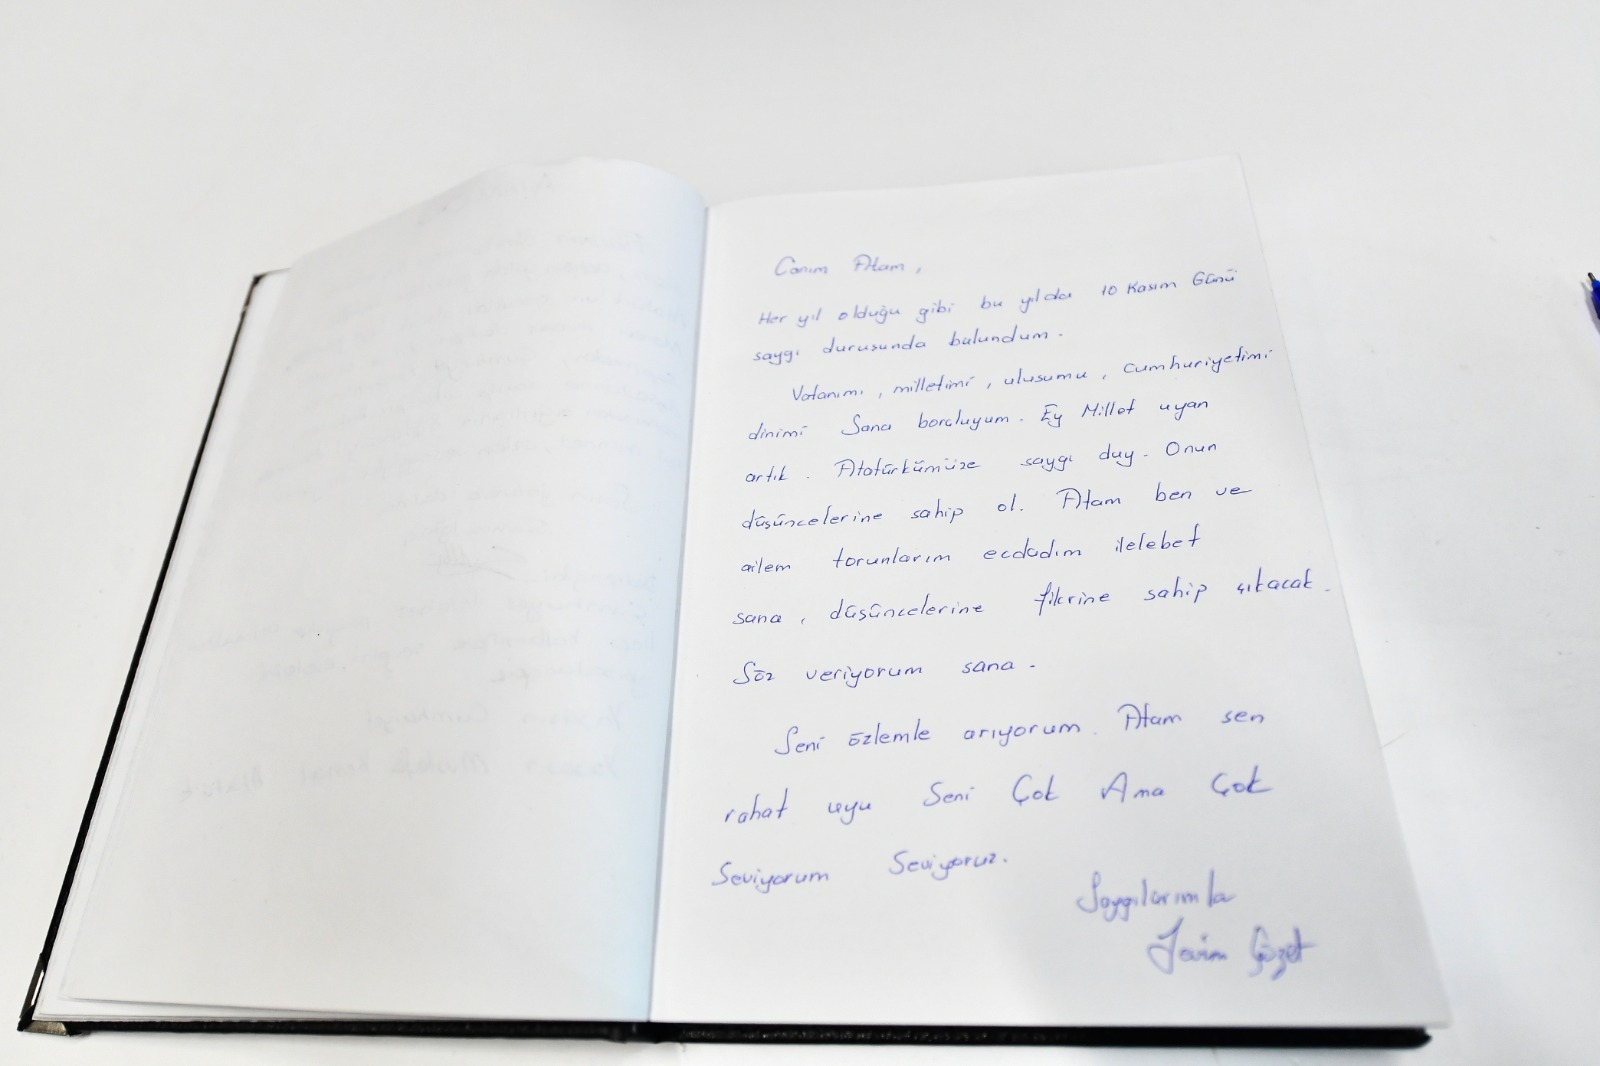 Canım Atam,
Her yıl olduğu gibi bu yılda 10 Kasım Günü
saygı durusunda bulundum.
Vatanımı, milletimi, ulusumu, cumhuriyetimi
dinimi Sana borcluyum. Ey Millet uyan
artık. Atatürkümüze saygı duy. Onun
düşüncelerine sahip ol. Atam ben ve
ailem torunlarım ecdadım ilelebet
sana, düşüncelerine fikrine sahip çıkacak.
Söz veriyorum sana.
Seni özlemle arıyorum. Atam sen
rahat uyu Seni Çok Ama Çok
Seviyorum Seviyoruz.
Saygılarımla